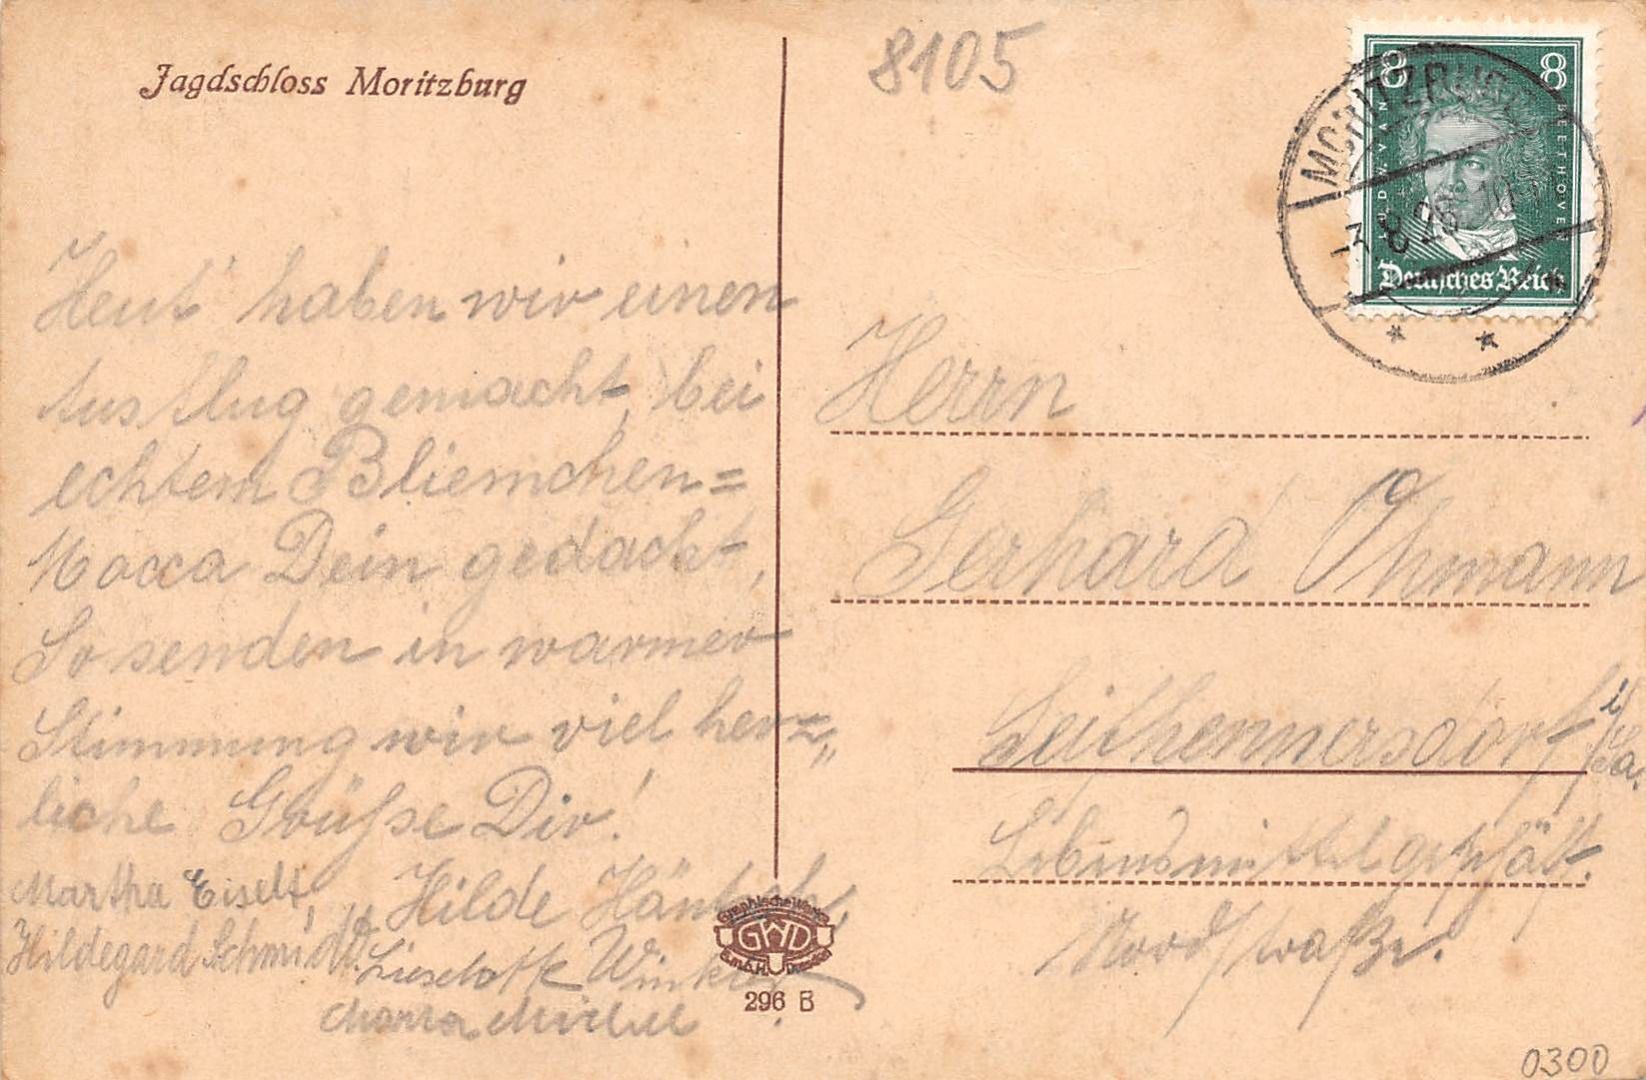 Jagdschloss Moritzburg
8105
Heut' haben wir einen
Ausflug gemacht, bei
echtem Bliemchen=
Mocca Dein gedacht,
So senden in warmer
Stimmung wir viel herz=
liche Grüße Dir!
Martha Eiselt,
Hilde Häntsch,
Hildegard Schmidt,
Lieselotte Winkler
8 8
LUDW. VAN
BEETHOVEN
Deutsches Reich
MORITZBURG
-3.8.26. 10
* *
Herrn
Gerhard Ohmann
Seifhennersdorf i/Sa.
Lebensmittelgeschäft.
Nordstraße.
Graphische Werke
GWD
G.m.b.H. Dresden
296 B
0300